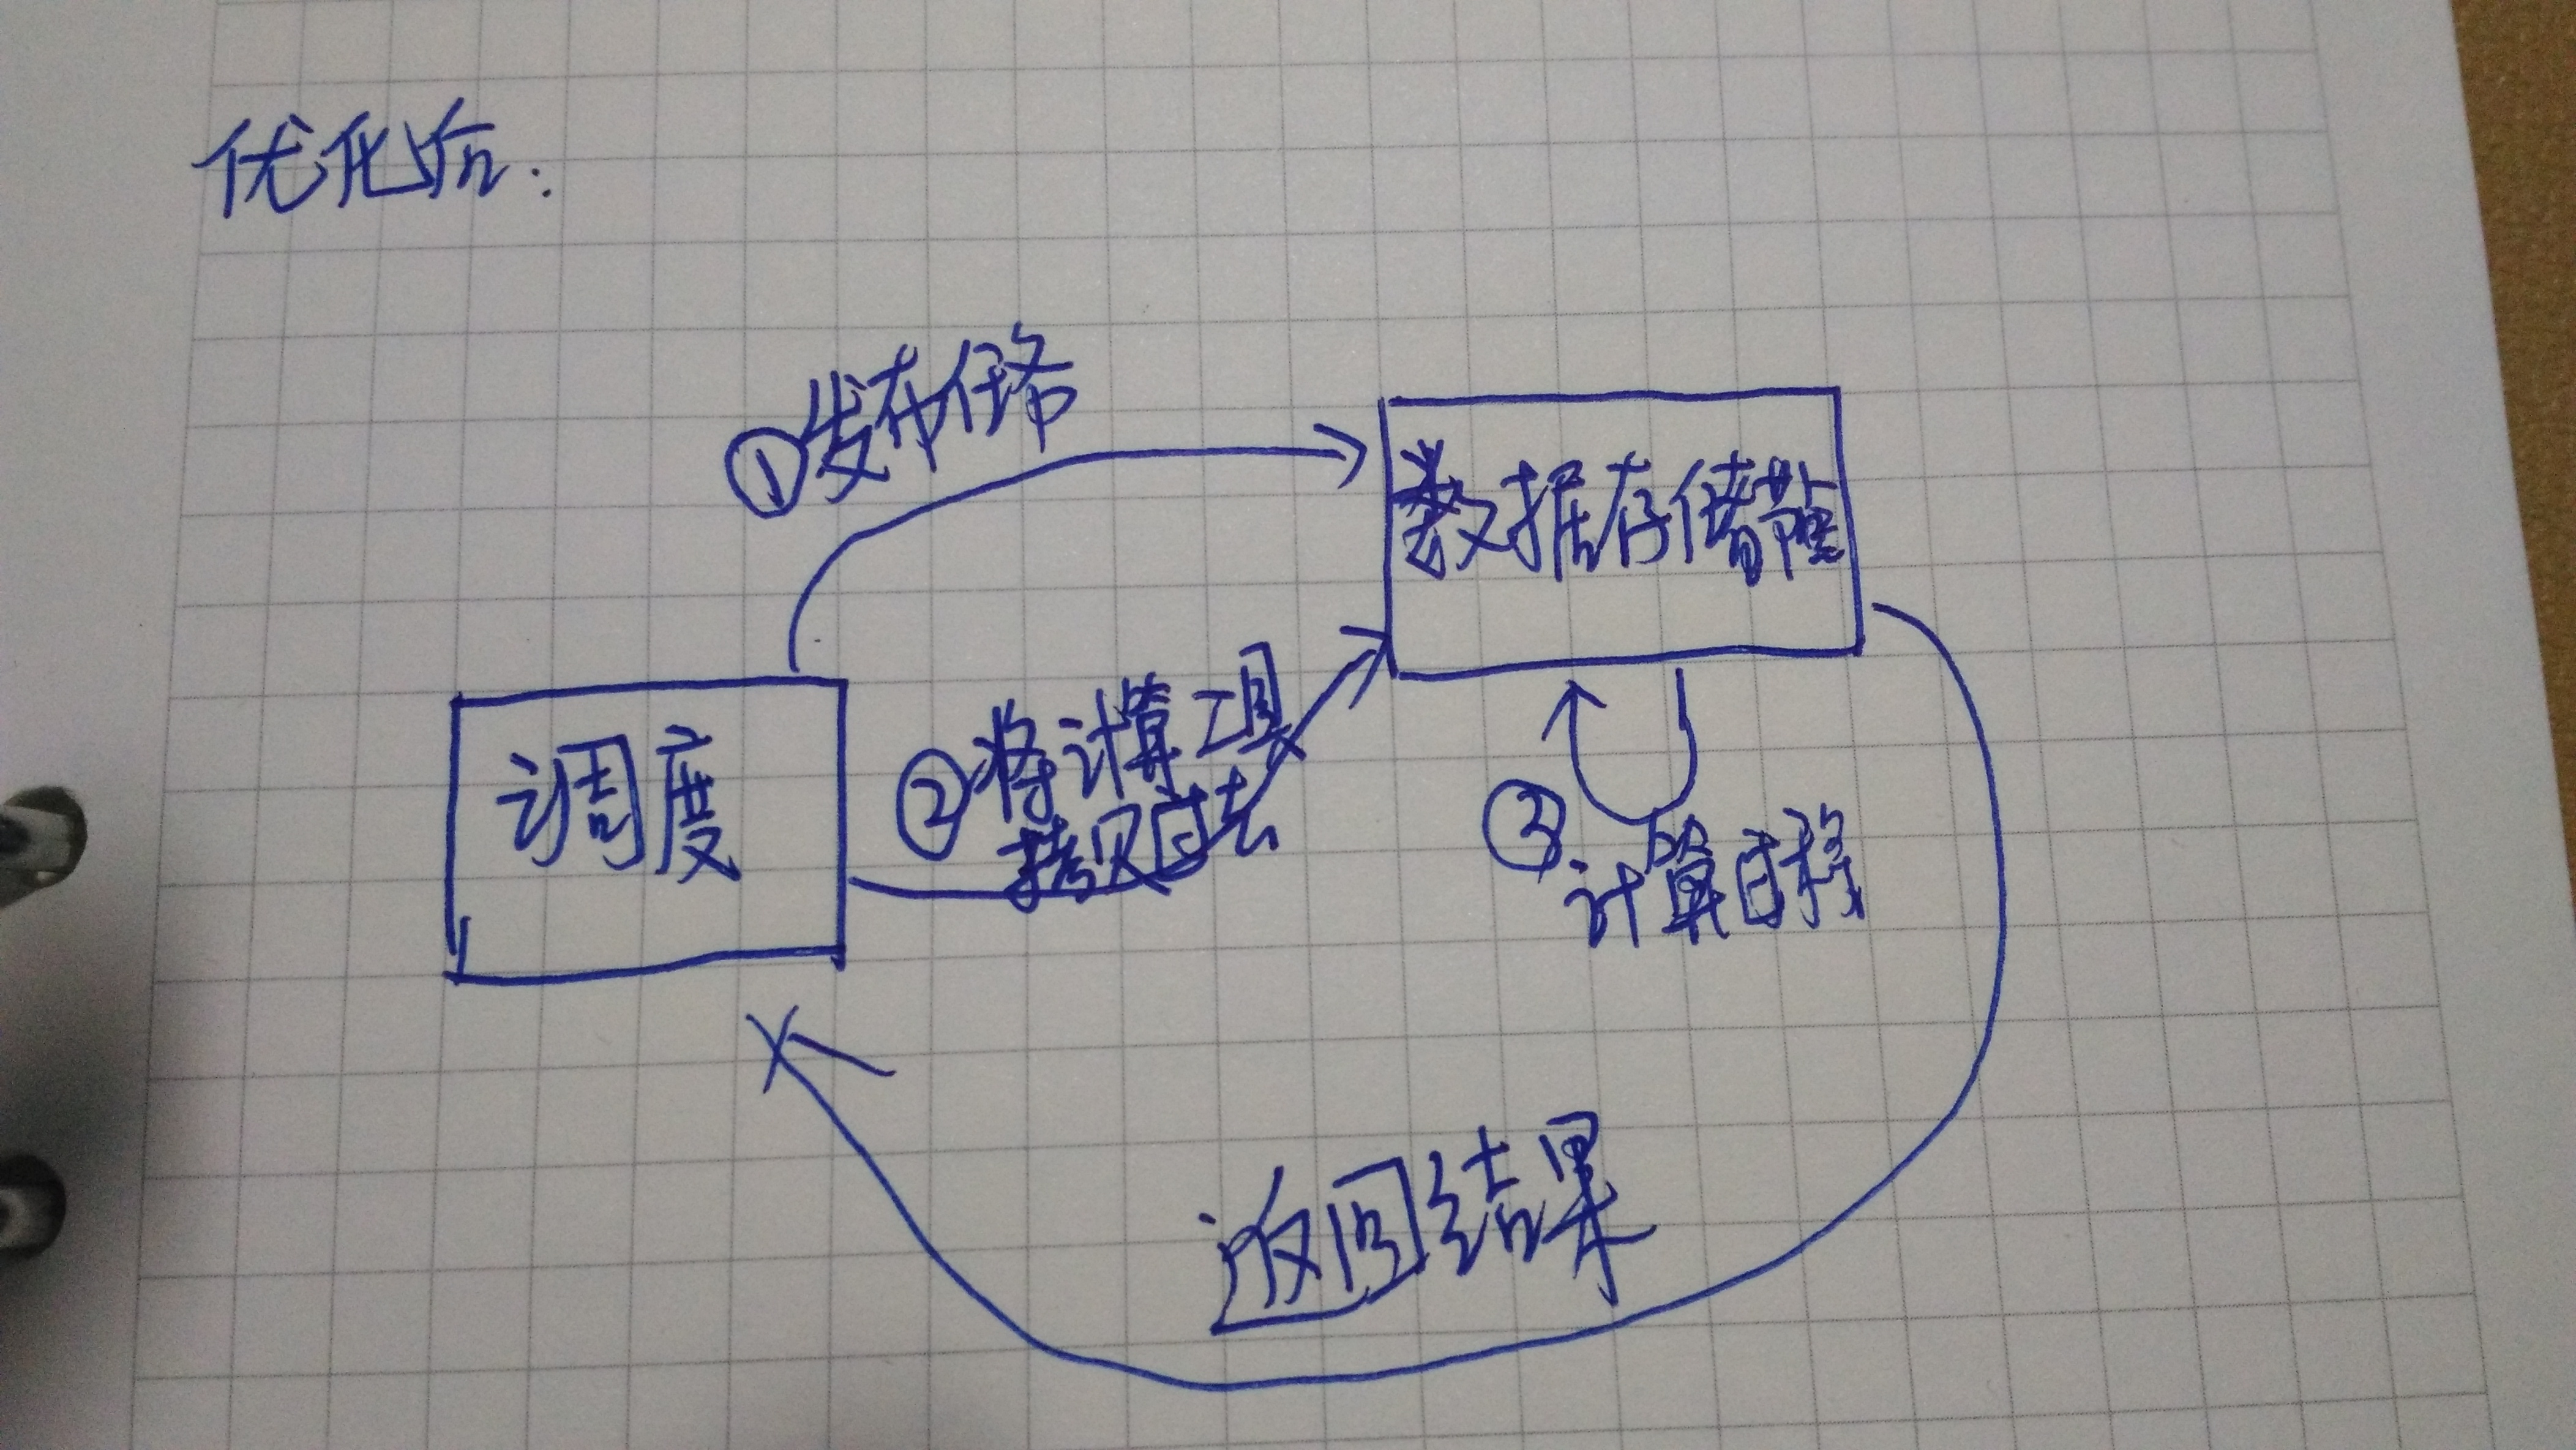 优化后:
①发布任务
数据存储
调度
②将计算工具
拷贝过去
③
计算目标
返回结果